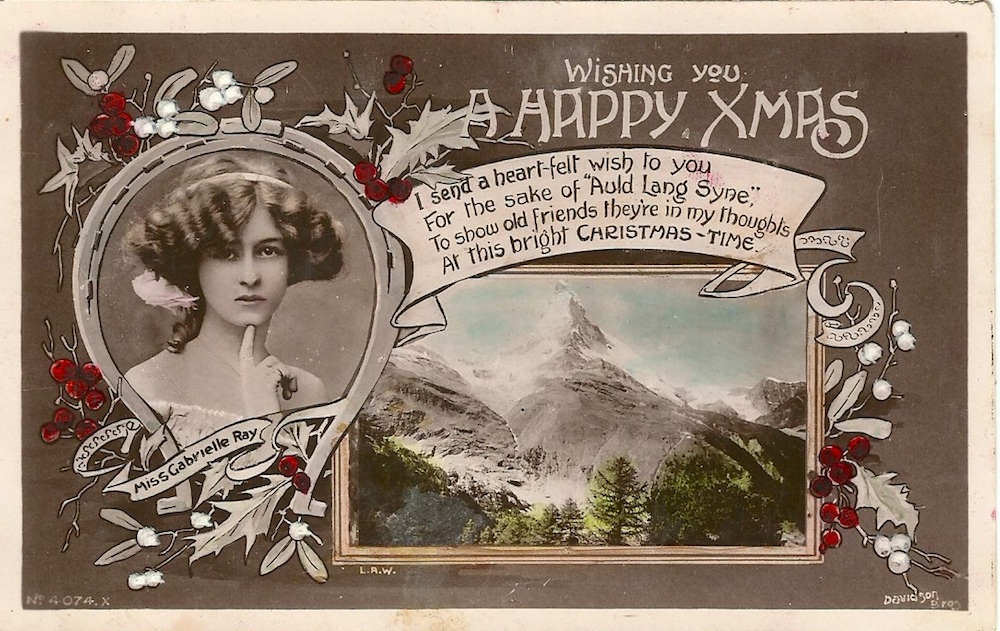 Wishing you
A Happy Xmas
I send a heart-felt wish to you
For the sake of "Auld Lang Syne,"
To show old friends they're in my thoughts
At this bright CHRISTMAS-TIME
Miss Gabrielle Ray
L.A.W.
No 4074.X
Davidson
Bros